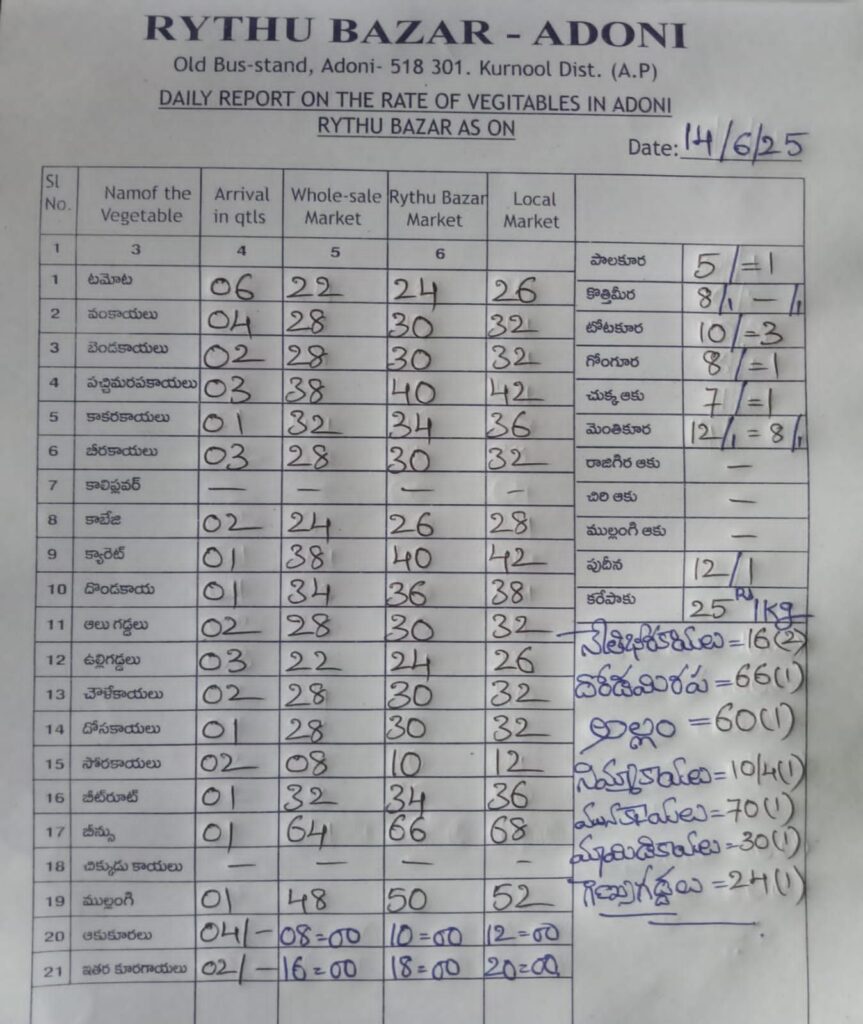 RYTHU BAZAR - ADONI
Old Bus-stand, Adoni- 518 301. Kurnool Dist. (A.P)
DAILY REPORT ON THE RATE OF VEGITABLES IN ADONI
RYTHU BAZAR AS ON
Date: 14/6/25
Sl No. Namof the Vegetable Arrival in qtls Whole-sale Market Rythu Bazar Market Local Market
1 3 4 5 6
1 టమోట 06 22 24 26
2 వంకాయలు 04 28 30 32
3 బెండకాయలు 02 28 30 32
4 పచ్చిమిరపకాయలు 03 38 40 42
5 కాకరకాయలు 01 32 34 36
6 బీరకాయలు 03 28 30 32
7 కాలిఫ్లవర్ — — — -
8 కాబేజి 02 24 26 28
9 క్యారెట్ 01 38 40 42
10 దొండకాయ 01 34 36 38
11 ఆలు గడ్డలు 02 28 30 32
12 ఉల్లిగడ్డలు 03 22 24 26
13 చౌళేకాయలు 02 28 30 32
14 దోసకాయలు 01 28 30 32
15 సోరకాయలు 02 08 10 12
16 బీట్‌రూట్ 01 32 34 36
17 బీన్సు 01 64 66 68
18 చిక్కుడు కాయలు — — — -
19 ముల్లంగి 01 48 50 52
20 ఆకుకూరలు 04/- 08=00 10=00 12=00
21 ఇతర కూరగాయలు 02/- 16=00 18=00 20=00
పాలకూర 5/=1
కొత్తిమీర 8/1 — /1
టోటకూర 10/=3
గోంగూర 8/=1
చుక్క ఆకు 7/=1
మెంతికూర 12/1 = 8/1
రాజిగిర ఆకు —
చిరి ఆకు —
ముల్లంగి ఆకు —
పుదీన 12/1
కరేపాకు 25 /1kg
నేతిభీరకాయలు = 16(2)
= 66(1)
అల్లం = 60(1)
నిమ్మకాయలు = 10/4(1)
మునకాయలు = 70(1)
మామిడికాయలు = 30(1)
గెణుసుగడ్డలు = 24(1)